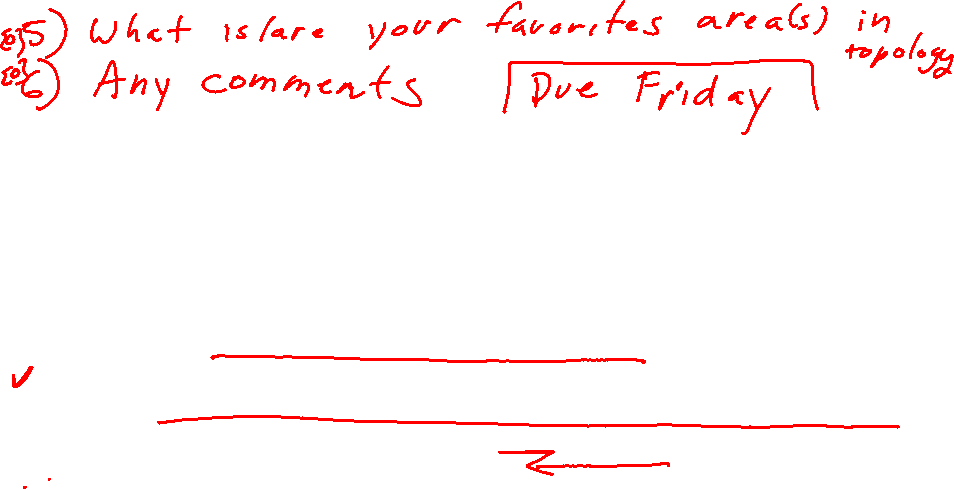 [0] 5) What is/are your favorites area(s) in topology
[0] 6) Any comments Due Friday